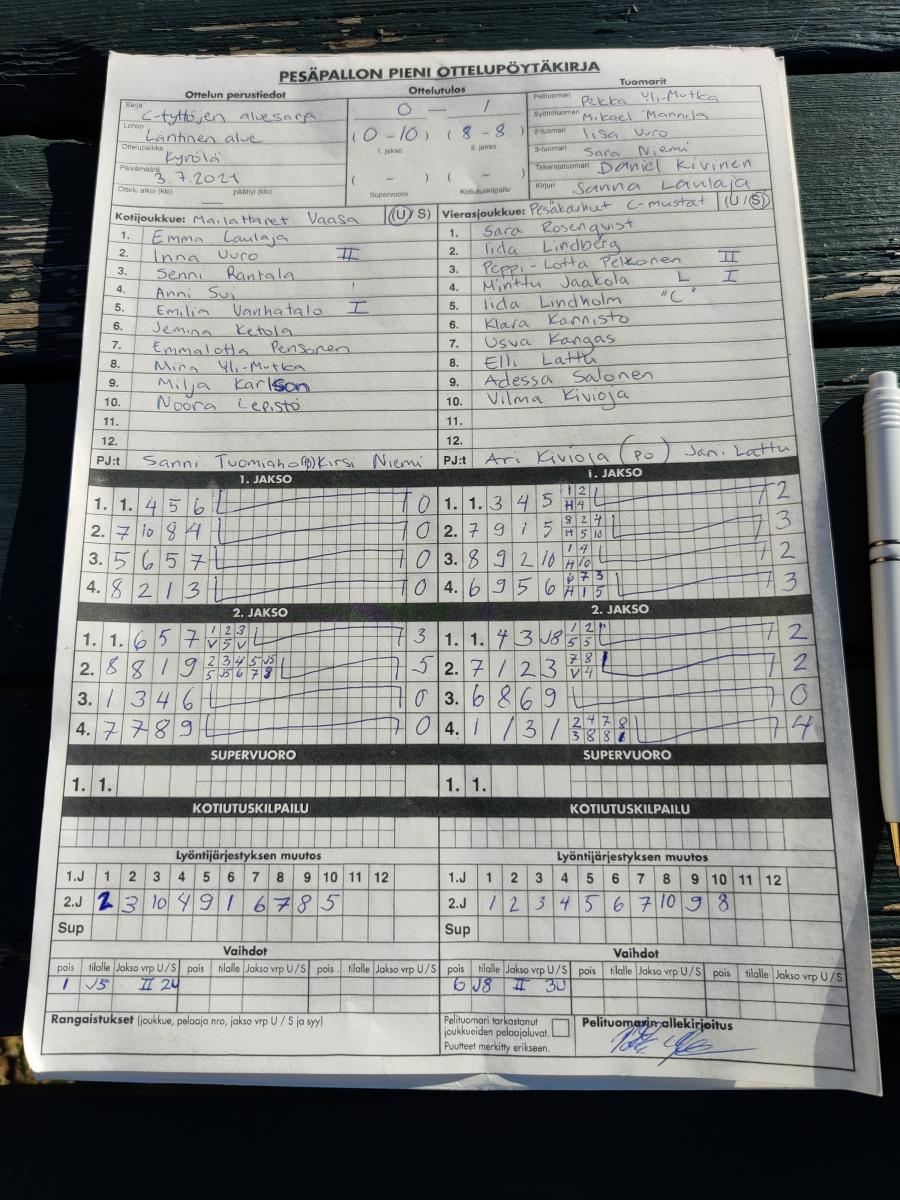 PESÄPALLON PIENI OTTELUPÖYTÄKIRJA
Ottelun perustiedot
Sarja C-tyttöjen aluesarja
Lohko Läntinen alue
Ottelupaikka Kyrölä
Päivämäärä 3.7.2021
Ottelu alkoi (klo) päättyi (klo)
Ottelutulos
0 — 1
(0-10) (8-8)
1. jakso 2. jakso
( - ) ( - )
Supervuoro Kotiutuskilpailu
Tuomarit
Pelituomari Pekka Yli-Mutka
Syöttötuomari Mikael Mannila
2-tuomari Iisa Uuro
3-tuomari Sara Niemi
Takarajatuomari Daniel Kivinen
Kirjuri Sanna Laulaja
Kotijoukkue: Mailattaret Vaasa (U/S)
1. Emma Laulaja
2. Inna Uuro II
3. Senni Rantala
4. Anni Sui
5. Emilia Vanhatalo I
6. Jemina Ketola
7. Emmalotta Pensonen
8. Mira Yli-Mutka
9. Milja Karlson
10. Noora Lepistö
11.
12.
PJ:t Sanni Tuomiaho Kirsi Niemi
Vierasjoukkue: Pesäkarhut C-mustat (U/S)
1. Sara Rosenqvist
2. Iida Lindberg
3. Peppi-Lotta Pelkonen II
4. Minttu Jaakola L I
5. Iida Lindholm "C"
6. Klara Kannisto
7. Usva Kangas
8. Elli Lattu
9. Adessa Salonen
10. Vilma Kivioja
11.
12.
PJ:t Ari Kivioja (PO) Jani Lattu
1. JAKSO
1. 1. 4 5 6 0
2. 7 10 8 4 0
3. 5 6 5 7 0
4. 8 2 1 3 0
2. JAKSO
1. 1. 6 5 7 1 2 3 3
V 5 V
2. 8 8 1 9 2 3 4 5 J5 5
5 J5 6 7 8
3. 1 3 4 6 0
4. 7 7 8 9 0
SUPERVUORO
1. 1.
KOTIUTUSKILPAILU
Lyöntijärjestyksen muutos
1.J 1 2 3 4 5 6 7 8 9 10 11 12
2.J 2 3 10 4 9 1 6 7 8 5
Sup
Vaihdot
pois tilalle Jakso vrp U/S pois tilalle Jakso vrp U/S pois tilalle Jakso vrp U/S
1 J5 II 2U
Rangaistukset (joukkue, pelaaja nro, jakso vrp U / S ja syy)
1. JAKSO
1. 1. 3 4 5 1 2 2
H 4
2. 7 9 1 5 8 2 4 3
H 5 10
3. 8 9 2 10 1 4 2
H 10
4. 6 9 5 6 6 7 3 3
H 1 5
2. JAKSO
1. 1. 4 3 J8 1 2 2
5 5
2. 7 1 2 3 7 8 2
V 4
3. 6 8 6 9 0
4. 1 1 3 1 2 4 7 8 4
3 8 8 1
SUPERVUORO
1. 1.
KOTIUTUSKILPAILU
Lyöntijärjestyksen muutos
1.J 1 2 3 4 5 6 7 8 9 10 11 12
2.J 1 2 3 4 5 6 7 10 9 8
Sup
Vaihdot
pois tilalle Jakso vrp U/S pois tilalle Jakso vrp U/S pois tilalle Jakso vrp U/S
6 J8 II 3U
Pelituomari tarkastanut
joukkueiden pelaajaluvat.
Puutteet merkitty erikseen.
Pelituomarin allekirjoitus